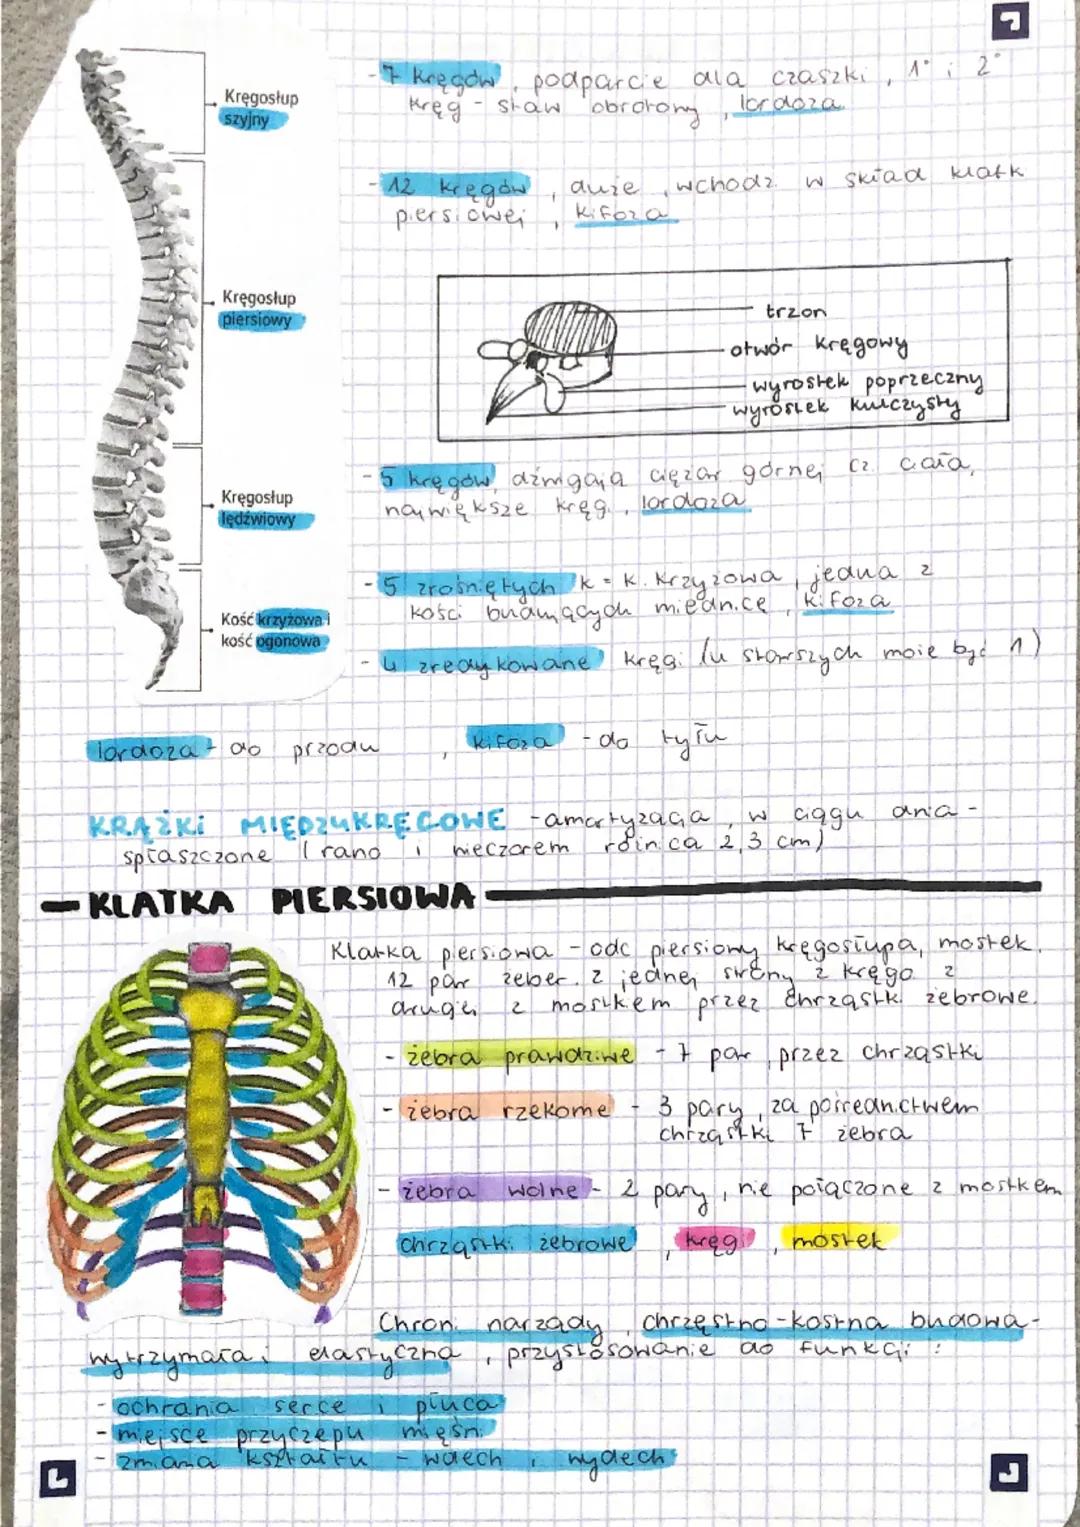 Kręgosłup
szyjny
- 7 kręgów, podparcie dla czaszki, 1° i 2°
kręg - staw obrotowy, lordoza
- 12 kręgów, duże, wchodz. w skład klatk
piersiowej, kifoza
Kręgosłup
piersiowy
trzon
otwór kręgowy
wyrostek poprzeczny
wyrostek kulczysty
- 5 kręgów, dźwigają ciężar górnej cz. ciała,
największe kręg., lordoza
Kręgosłup
lędźwiowy
- 5 zrośniętych k = k. krzyżowa, jedna z
kości budujących miednicę, kifoza
Kość krzyżowa i
kość ogonowa
- 4 zredukowane kręgi (u starszych może być 1)
lordoza - do przodu, kifoza - do tyłu
KRĄŻKI MIĘDZYKRĘGOWE - amortyzacja, w ciągu dnia -
spłaszczone (rano i wieczorem różnica 2,3 cm)
KLATKA PIERSIOWA
Klatka piersiowa - odc piersiowy kręgosłupa, mostek,
12 par żeber. z jednej strony z kręgo z
drugiej z mostkiem przez chrząstki żebrowe.
- żebra prawdziwe - 7 par, przez chrząstki
- żebra rzekome - 3 pary, za pośrednictwem
chrząstki 7 żebra
- żebra wolne - 2 pary, nie połączone z mostkiem
chrząstki żebrowe, kręgi, mostek
Chroni narządy, chrzęstno-kostna budowa -
wytrzymała i elastyczna, przystosowanie do funkcji:
- ochrania serce i płuca
- miejsce przyczepu mięśni
- zmiana kształtu - wdech i wydech